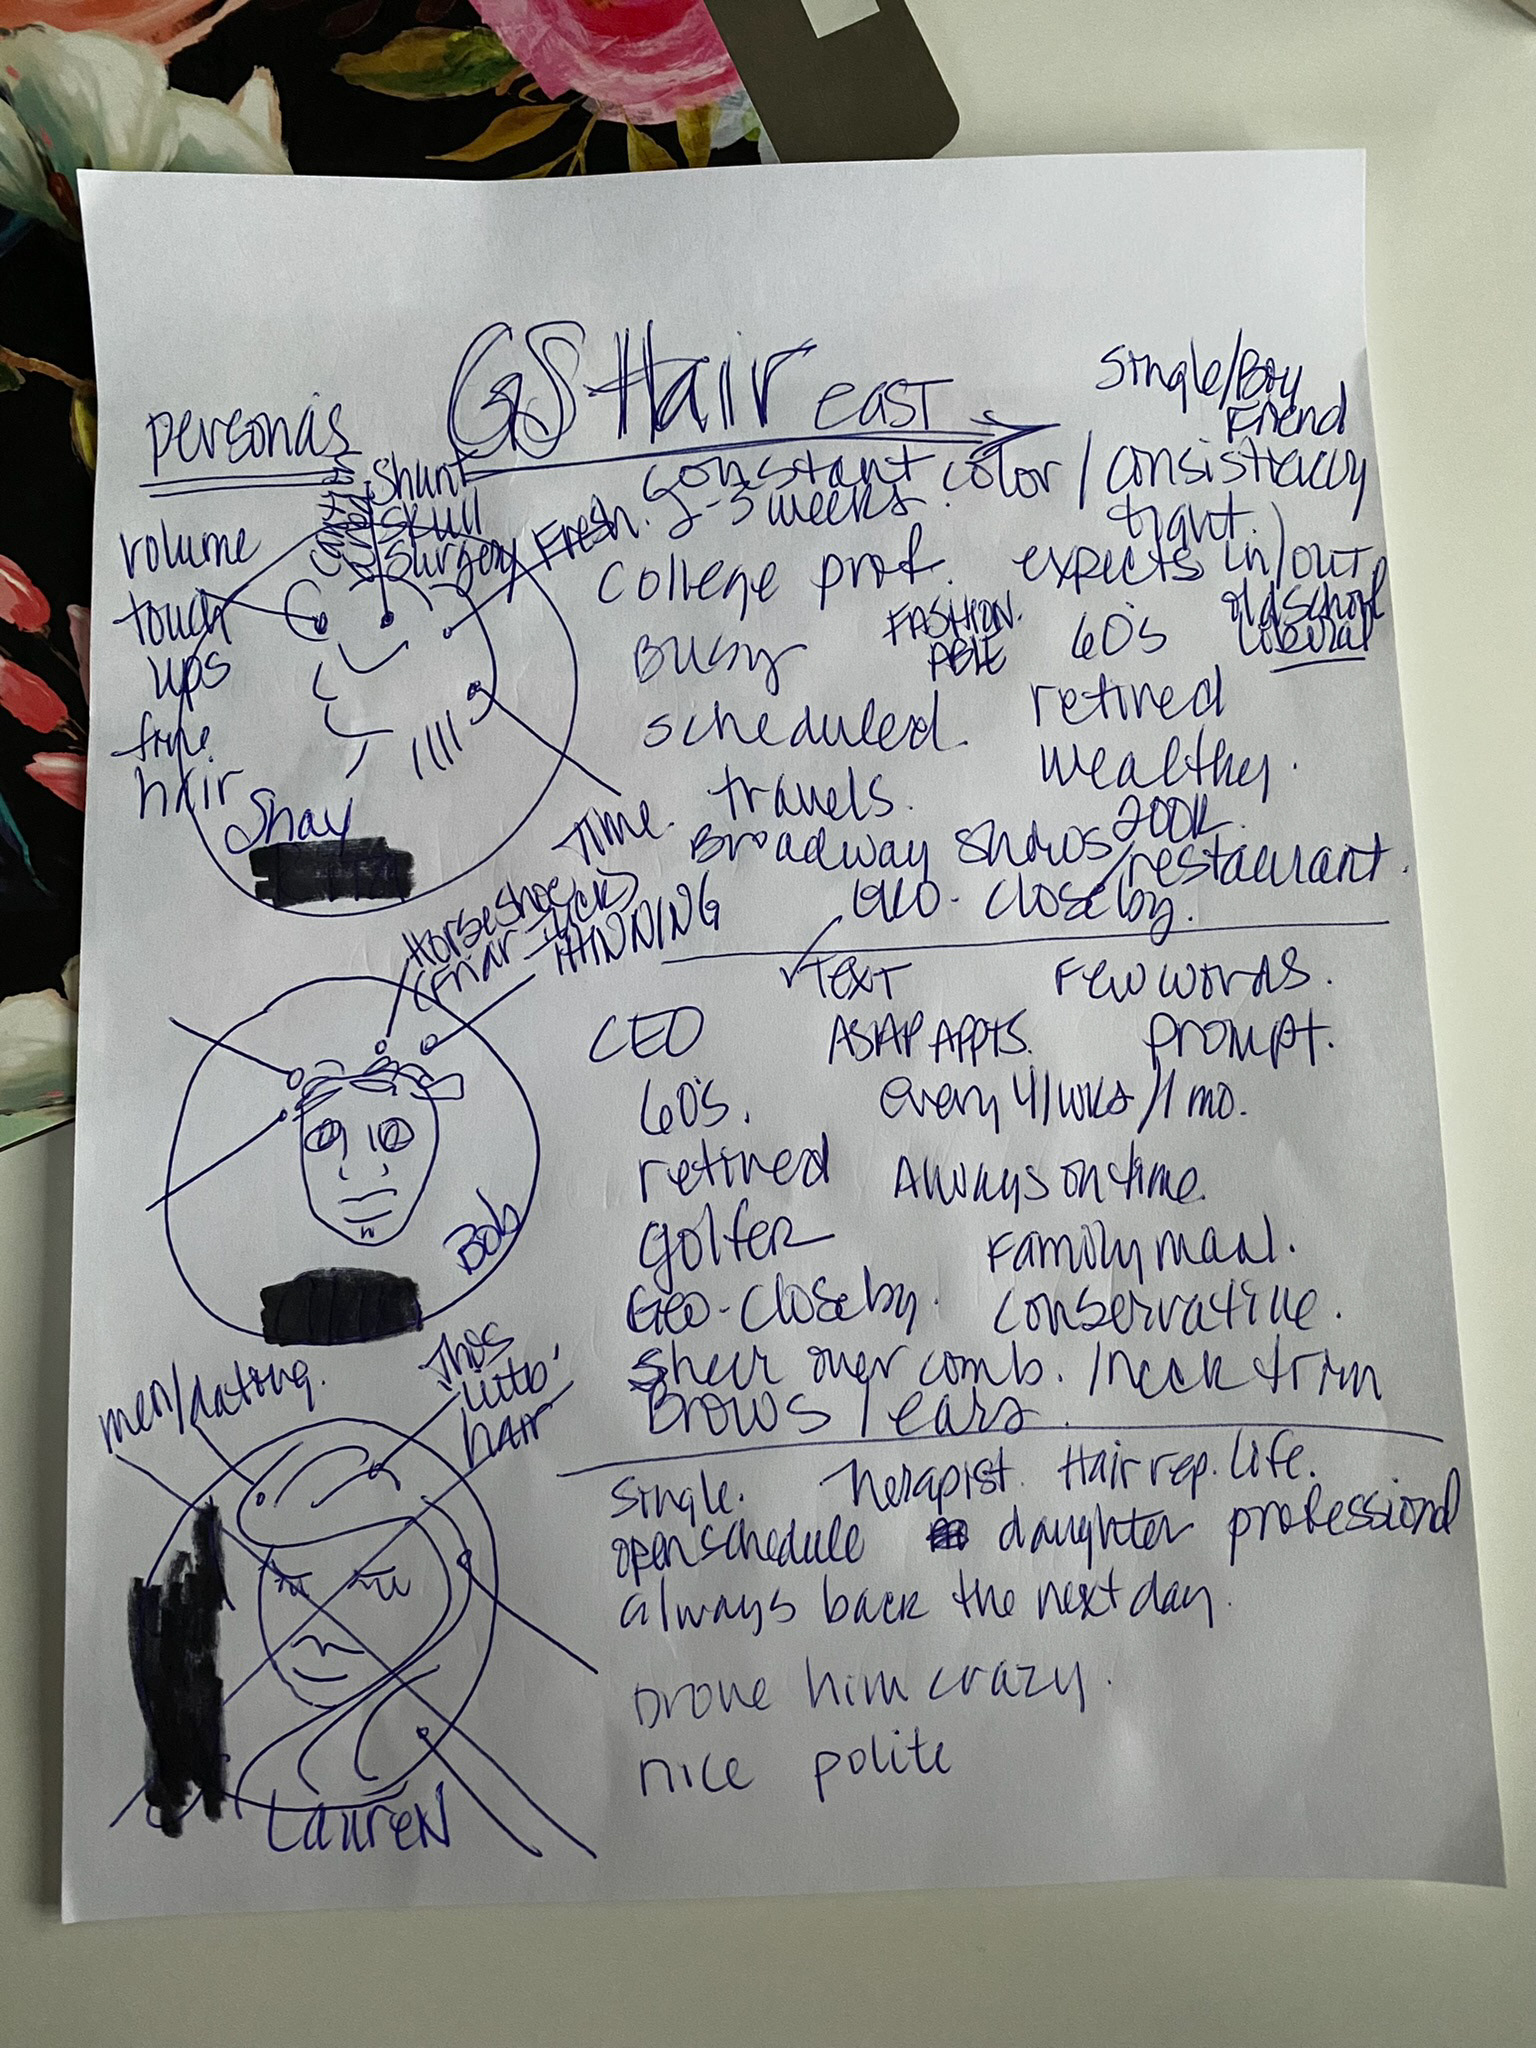 GS Hair east
personas
Single/Boy
Friend
Shunt
Skull
Surgery
volume
touch
ups
fine
hair
Fresh.
Time.
Shay
constant color / consistracy
2-3 weeks.
tight.
college prof. expects in/out
Busy FASHION.
ABLE 60's old school
Liberal
scheduled. retired
wealthy.
travels. 200K.
Broadway shows / restaurant.
Geo - closeby.
Horseshoe
(Friar Tuck)
THINNING
Bob
✓TEXT Few words.
CEO ASAP APPTS. prompt.
60's. every 4/wks/1 mo.
retired Always on time.
golfer Family man.
Geo-closeby. conservative.
Sheer over comb. /neck trim
Brows / ears.
men/dating.
hair
Lauren
Single. Therapist. Hair rep. life.
open schedule daughter professional
always back the next day.
Drove him crazy.
nice polite